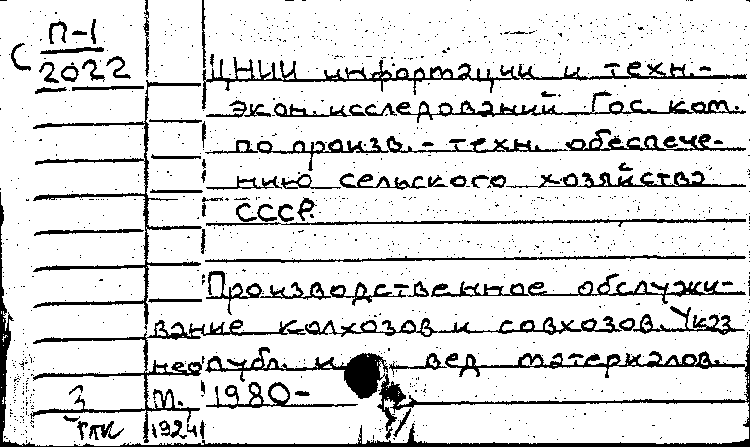 П-1
С 2022
ЦНИИ информации и техн.-
экон. исследований Гос. ком.
по произв.- техн. обеспече-
нию сельского хозяйства
СССР.
Производственное обслужи-
вание колхозов и совхозов. Указ
неопубл. и вед материалов.
3 М., 1980-
1924